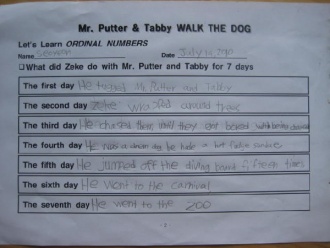 Mr. Putter & Tabby WALK THE DOG
Let's Learn ORDINAL NUMBERS
Name Date July
What did Zeke do with Mr. Putter and Tabby for 7 days
The first day He tugged Mr Putter and Tabby
The second day Zeke around trees
The third day He chased them until they got
The fourth day He a dog he hide a hot fudge sundae
The fifth day He jumped off the diving board fifteen times
The sixth day He went to the carnival
The seventh day He went to the zoo